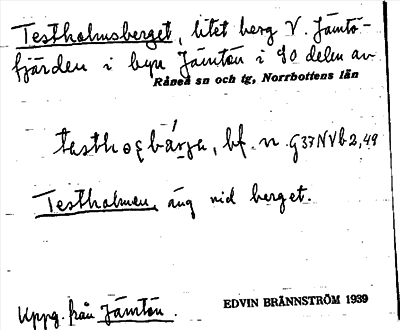 Testholmsberget, litet berg V. Jämtö-
fjärden i byn Jämtön i SO delen av
Råneå sn och tg, Norrbottens län
bf. n. G37NVb2,49
Testholmen, äng vid berget.
Uppg. från Jämtön.
EDVIN BRÄNNSTRÖM 1939